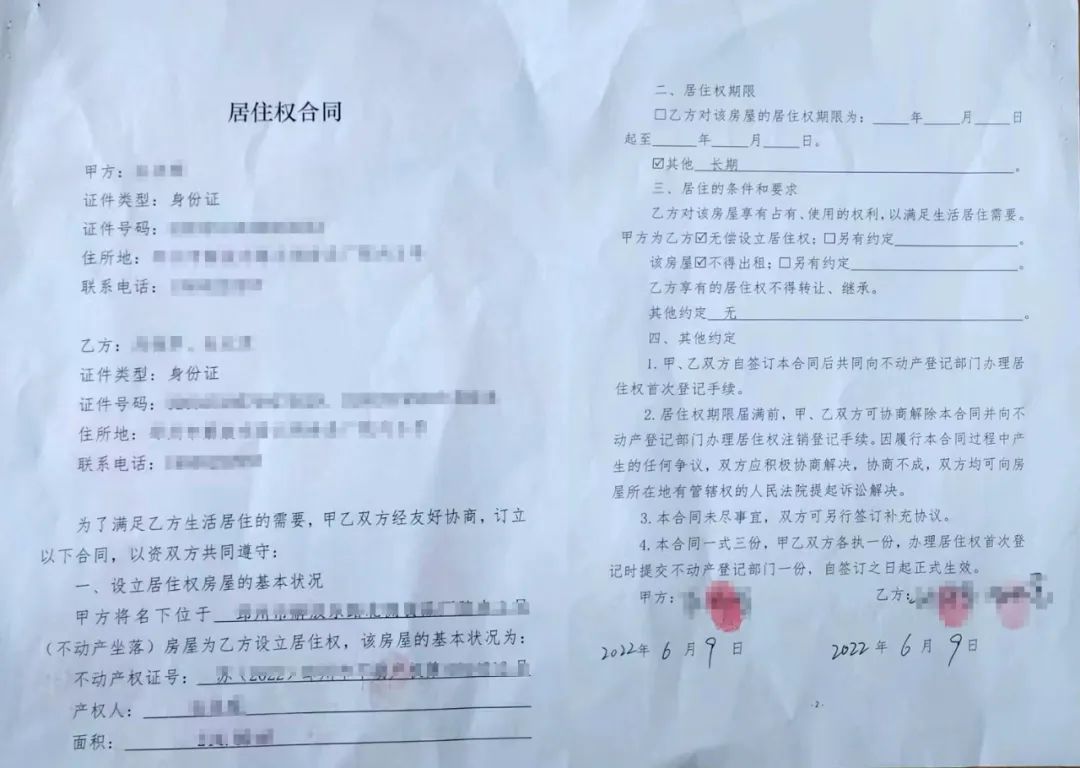 居住权合同
甲方：
证件类型：身份证
证件号码：
住所地：
联系电话：
乙方：
证件类型：身份证
证件号码：
住所地：
联系电话：
为了满足乙方生活居住的需要，甲乙双方经友好协商，订立
以下合同，以资双方共同遵守：
一、设立居住权房屋的基本状况
甲方将名下位于
（不动产坐落）房屋为乙方设立居住权，该房屋的基本状况为：
不动产权证号：苏（2022）
产权人：
面积：
二、居住权期限
☐乙方对该房屋的居住权期限为：____年____月____日
起至____年____月____日。
☑其他 长期。
三、居住的条件和要求
乙方对该房屋享有占有、使用的权利，以满足生活居住需要。
甲方为乙方☑无偿设立居住权；☐另有约定____。
该房屋☑不得出租；☐另有约定____。
乙方享有的居住权不得转让、继承。
其他约定 无。
四、其他约定
1.甲、乙双方自签订本合同后共同向不动产登记部门办理居
住权首次登记手续。
2.居住权期限届满前，甲、乙双方可协商解除本合同并向不
动产登记部门办理居住权注销登记手续。因履行本合同过程中产
生的任何争议，双方应积极协商解决，协商不成，双方均可向房
屋所在地有管辖权的人民法院提起诉讼解决。
3.本合同未尽事宜，双方可另行签订补充协议。
4.本合同一式三份，甲乙双方各执一份，办理居住权首次登
记时提交不动产登记部门一份，自签订之日起正式生效。
甲方： 乙方：
2022年6月9日 2022年6月9日
-2-